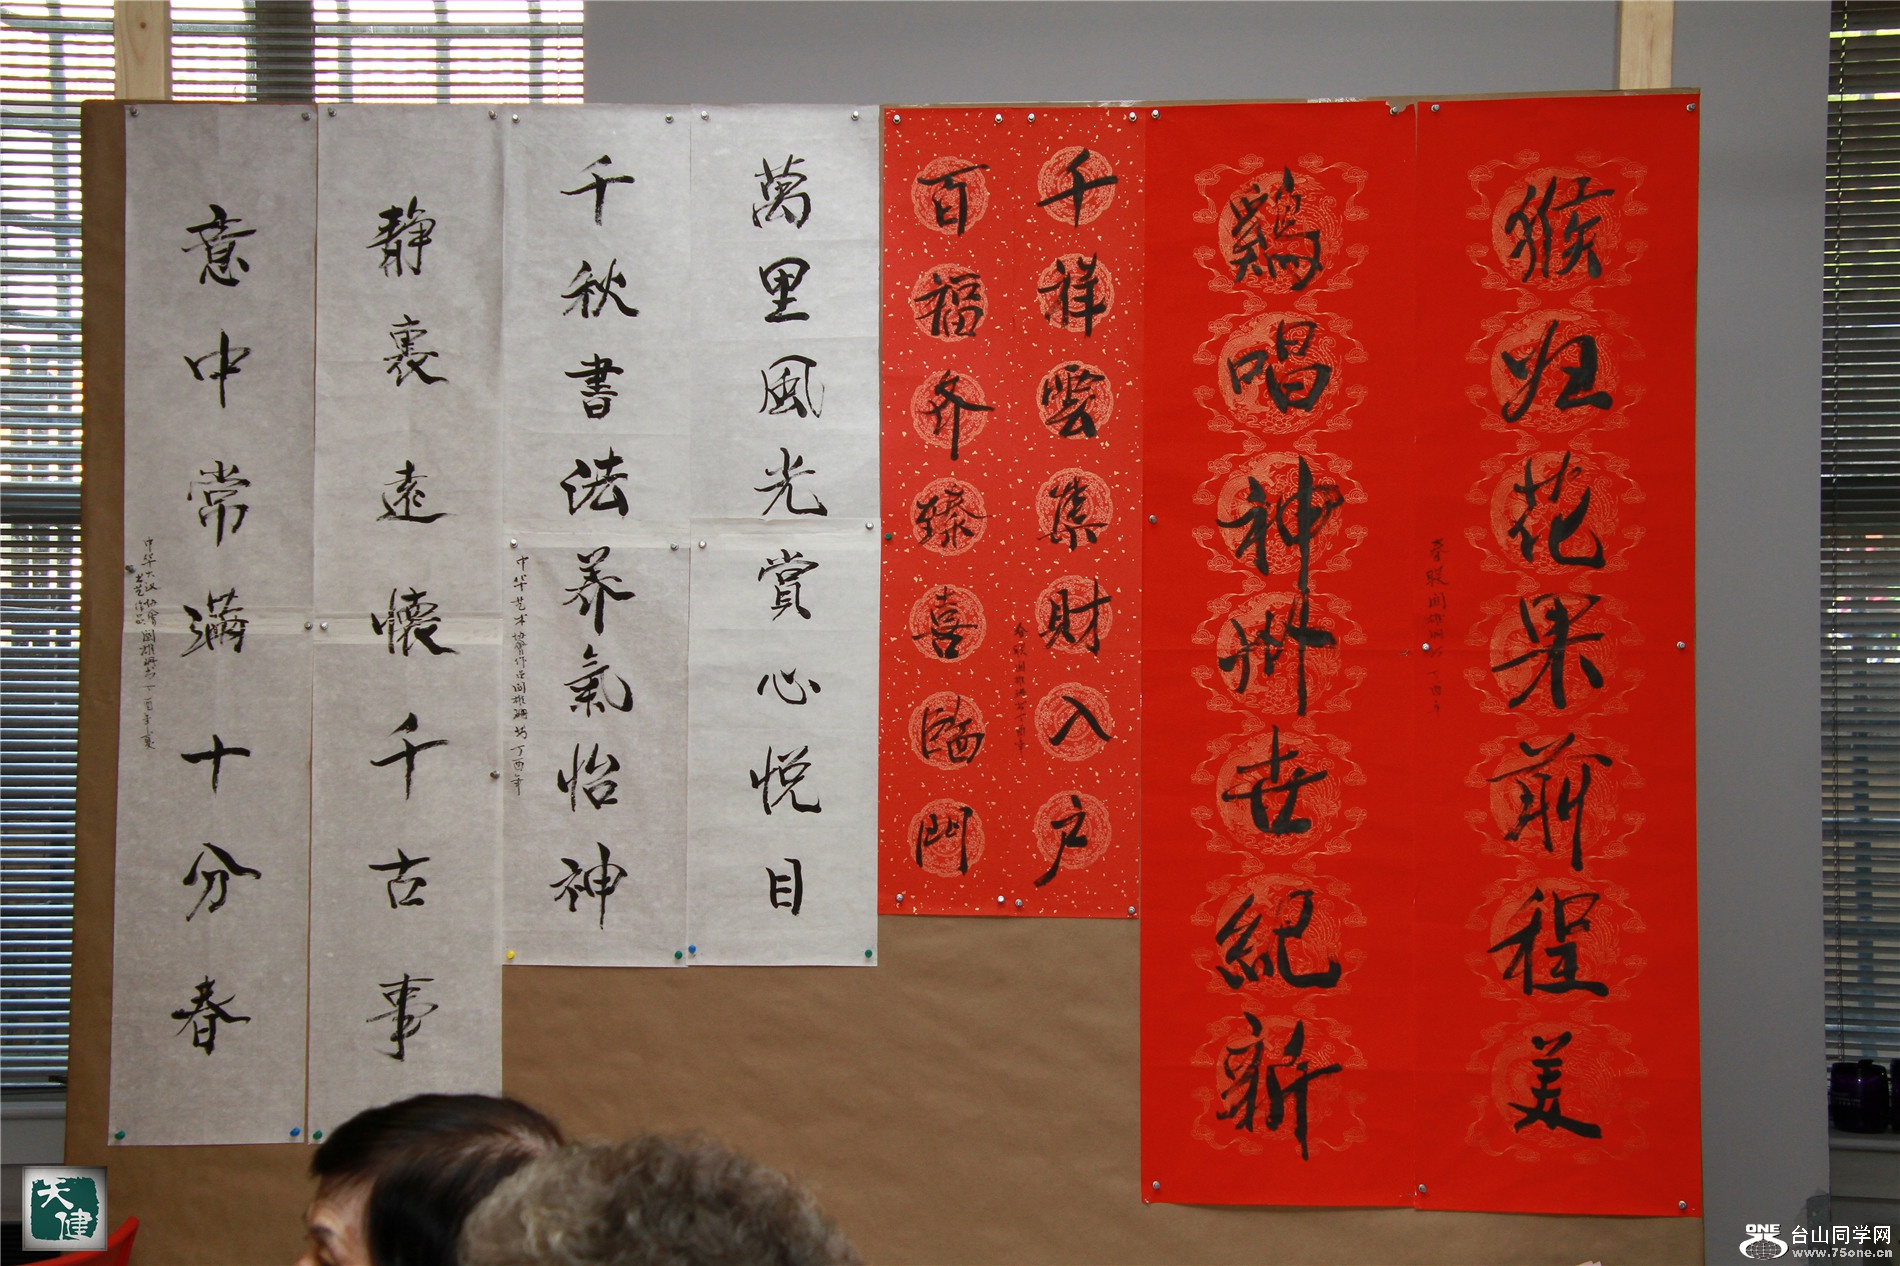 猴归花果前程美
鷄唱神州世紀新
千祥雲集財入户
百福齐臻喜臨門
萬里風光賞心悦目
千秋書法养氣怡神
静裏遠懷千古事
意中常滿十分春
中华艺术協會
丁酉年
天健
ONE 台山同学网
www.75one.cn